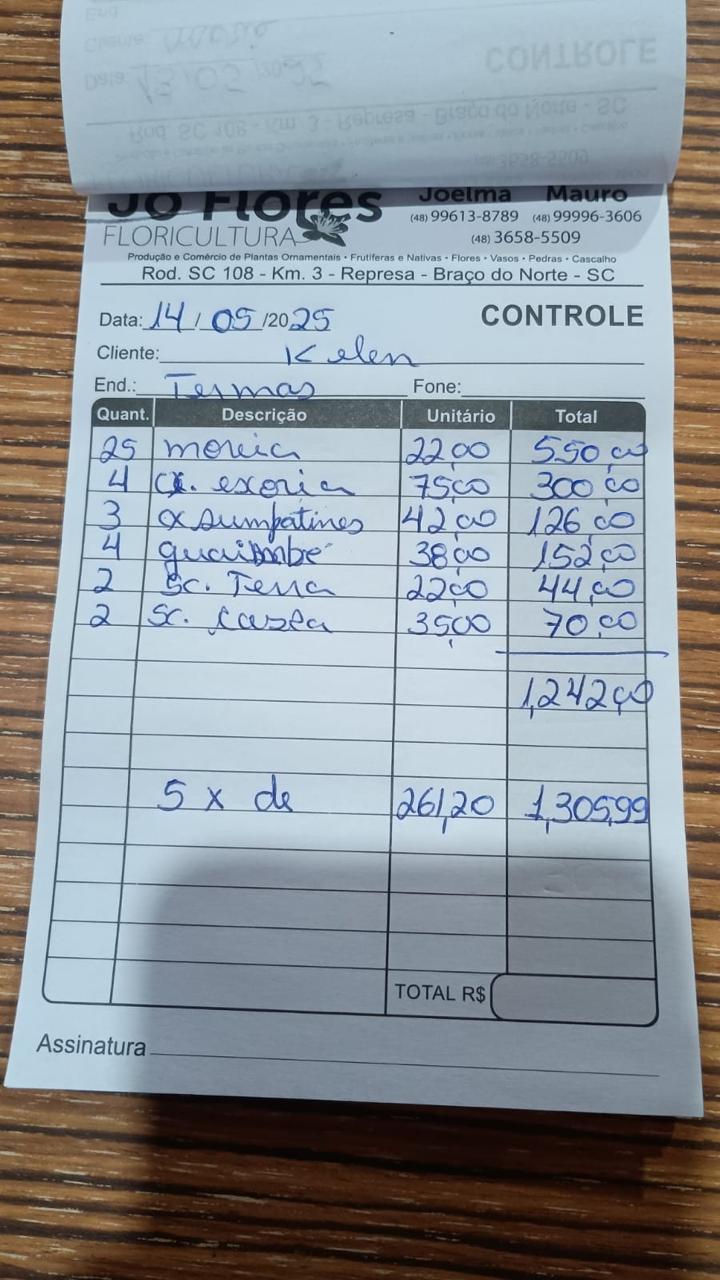 CONTROLE
Jô Flores
FLORICULTURA
Joelma Mauro
(48) 99613-8789 (48) 99996-3606
(48) 3658-5509
Produção e Comércio de Plantas Ornamentais • Frutíferas e Nativas • Flores • Vasos • Pedras • Cascalho
Rod. SC 108 - Km. 3 - Represa - Braço do Norte - SC
Data: 14 / 05 /2025 CONTROLE
Cliente: Kelen
End.: Termas Fone:
Quant. Descrição Unitário Total
25 moreia 22,00 550,00
4 cx. exoria 75,00 300,00
3 cx sumpatines 42,00 126,00
4 guaimbé 38,00 152,00
2 Sc. Terra 22,00 44,00
2 Sc. casca 35,00 70,00
1,242,00
5 x de 261,20 1,305,99
TOTAL R$
Assinatura